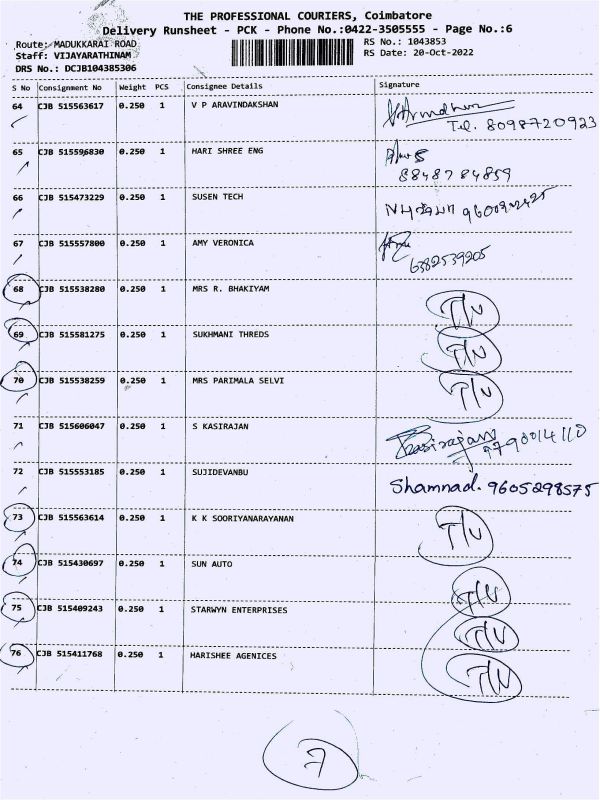 THE PROFESSIONAL COURIERS, Coimbatore
Delivery Runsheet - PCK - Phone No.:0422-3505555 - Page No.:6
Route: MADUKKARAI ROAD RS No.: 1043853
Staff: VIJAYARATHINAM RS Date: 20-Oct-2022
DRS No.: DCJB104385306
S No Consignment No Weight PCS Consignee Details Signature
64 CJB 515563617 0.250 1 V P ARAVINDAKSHAN
Tel. 8098720923
65 CJB 515596830 0.250 1 HARI SHREE ENG
8848784859
66 CJB 515473229 0.250 1 SUSEN TECH
67 CJB 515557800 0.250 1 AMY VERONICA
6382539205
68 CJB 515538280 0.250 1 MRS R. BHAKIYAM T/N
69 CJB 515581275 0.250 1 SUKHMANI THREDS T/N
70 CJB 515538259 0.250 1 MRS PARIMALA SELVI T/N
71 CJB 515606047 0.250 1 S KASIRAJAN Kasirajan 9790014110
72 CJB 515553185 0.250 1 SUJIDEVANBU Shamnad. 9605298575
73 CJB 515563614 0.250 1 K K SOORIYANARAYANAN T/N
74 CJB 515430697 0.250 1 SUN AUTO T/N
75 CJB 515409243 0.250 1 STARWYN ENTERPRISES T/N
76 CJB 515411768 0.250 1 HARISHEE AGENICES T/N
7